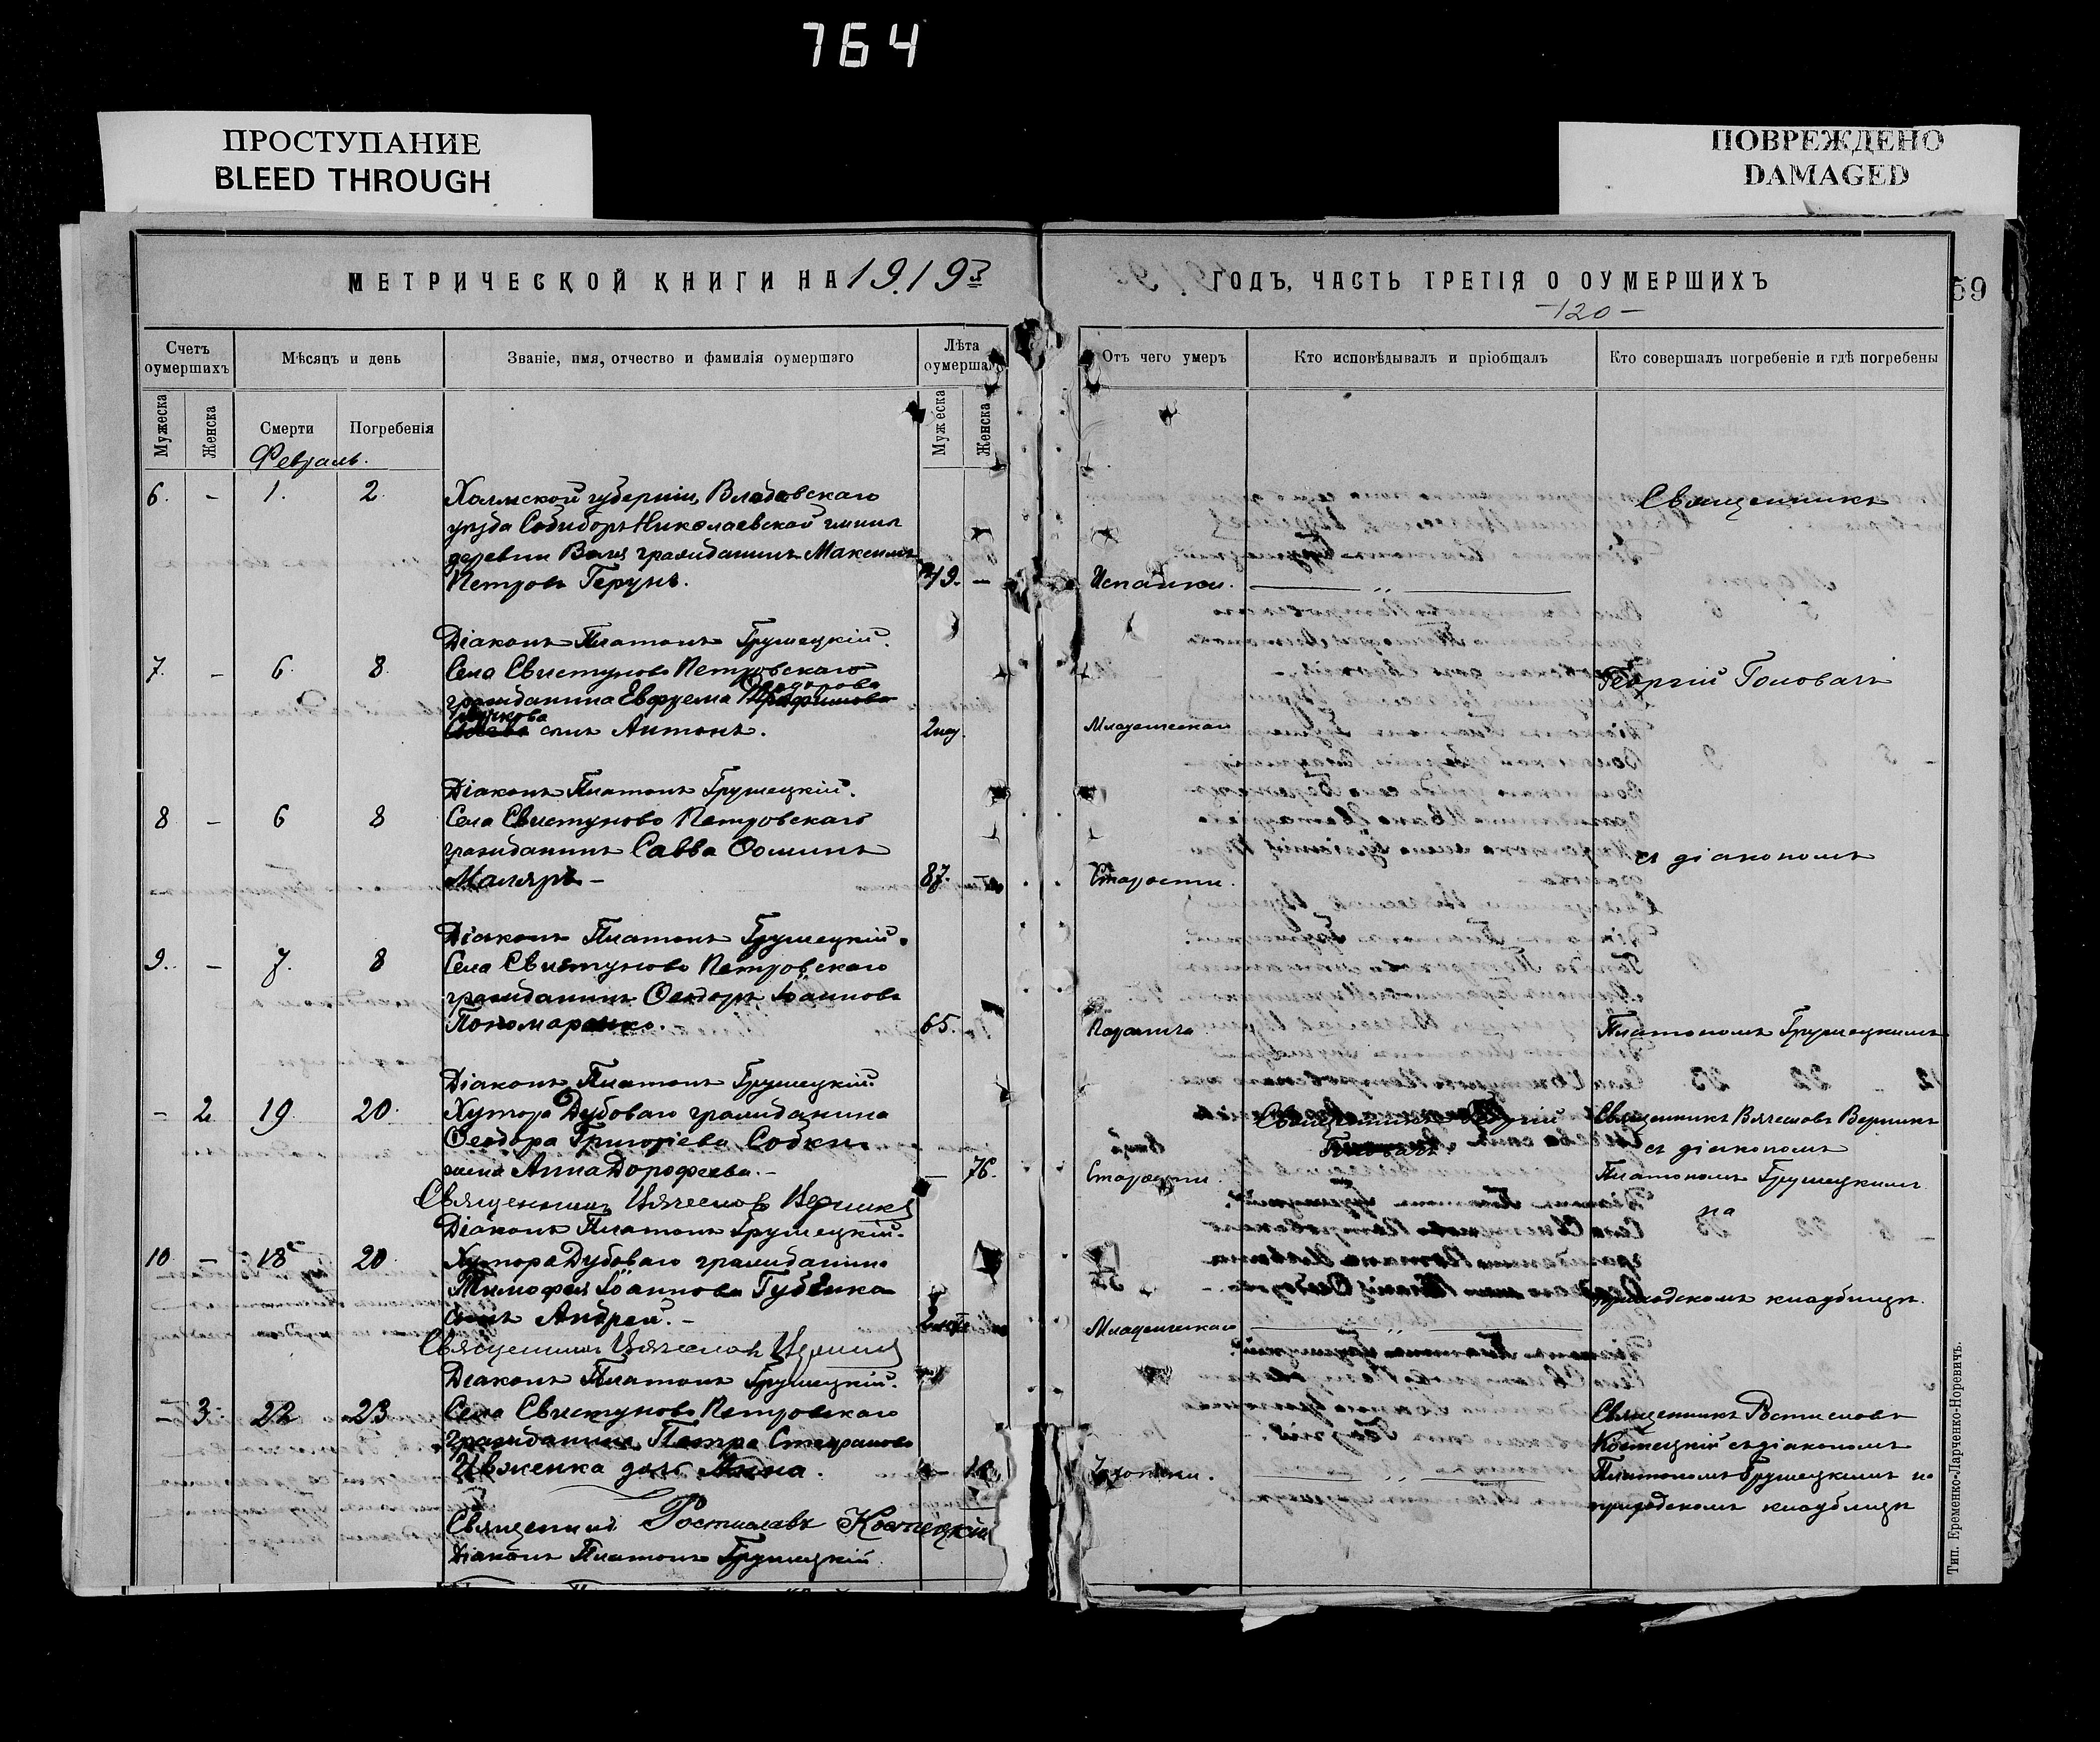 764
ПРОСТУПАНИЕ
BLEED THROUGH
ПОВРЕЖДЕНО
DAMAGED
МЕТРИЧЕСКОЙ КНИГИ НА 1919й
ГОДЪ, ЧАСТЬ ТРЕТІЯ О ОУМЕРШИХЪ
59
-120-
Счетъ оумершихъ
Мѣсяцъ и день
Званіе, имя, отчество и фамилія оумершаго
Лѣта оумершаго
Отъ чего умеръ
Кто исповѣдывалъ и пріобщалъ
Кто совершалъ погребеніе и гдѣ погребены
Мужеска
Женска
Смерти
Погребенія
Мужеска
Женска
Февраль.
6. - 1. 2
Холмской губерніи, Влодавскаго
уѣзда Собиборъ Николаевской гмины
деревни Воля гражданинъ Максимъ
Петровъ Герунъ.
19. -
Испанки.
Священникъ
Діаконъ Платонъ Грушецкій.
7. - 6. 8.
Села Свистуново Петровскаго
гражданина Евфрема
сынъ Антонъ.
Младенческая
Георгій Головачъ
Діаконъ Платонъ Грушецкій.
8 - 6 8
Села Свистуново Петровскаго
гражданинъ Савва Ѳоминъ
Маляръ -
87. -
Старости.
съ діакономъ
Діаконъ Платонъ Грушецкій.
9. - 7. 8
Села Свистуново Петровскаго
гражданинъ Ѳеодоръ Іоанновъ
Пономаренко.
65.
Платономъ Грушецкимъ
Діаконъ Платонъ Грушецкій.
- 2 19. 20.
Хутора Дубоваго гражданина
Ѳеодора Григоріева Собки
жена Анна Дорофеева. -
- 76.
Старости.
Священникъ Георгій
Головачъ
Священникъ Вячеславъ Вершикъ
съ діакономъ
Платономъ Грушецкимъ
на
Священникъ Вячеславъ
Діаконъ Платонъ Грушецкій.
10 - 18 20
Хутора Дубоваго гражданина
Тимофея Іоаннова Губенка
сынъ Андрей. -
Младенческая
приходскомъ кладбищѣ.
Священникъ Вячеславъ
Діаконъ Платонъ Грушецкій.
- 3 22 23
Села Свистуново Петровскаго
гражданина Петра Стефанова
Ивженка дочь Анна.
Священникъ Ростиславъ
Костецкій съ діакономъ
Платономъ Грушецкимъ на
приходскомъ кладбищѣ
Священникъ Ростиславъ Костецкій
Діаконъ Платонъ Грушецкій
Тип. Еременко-Ларченко-Норевичъ.